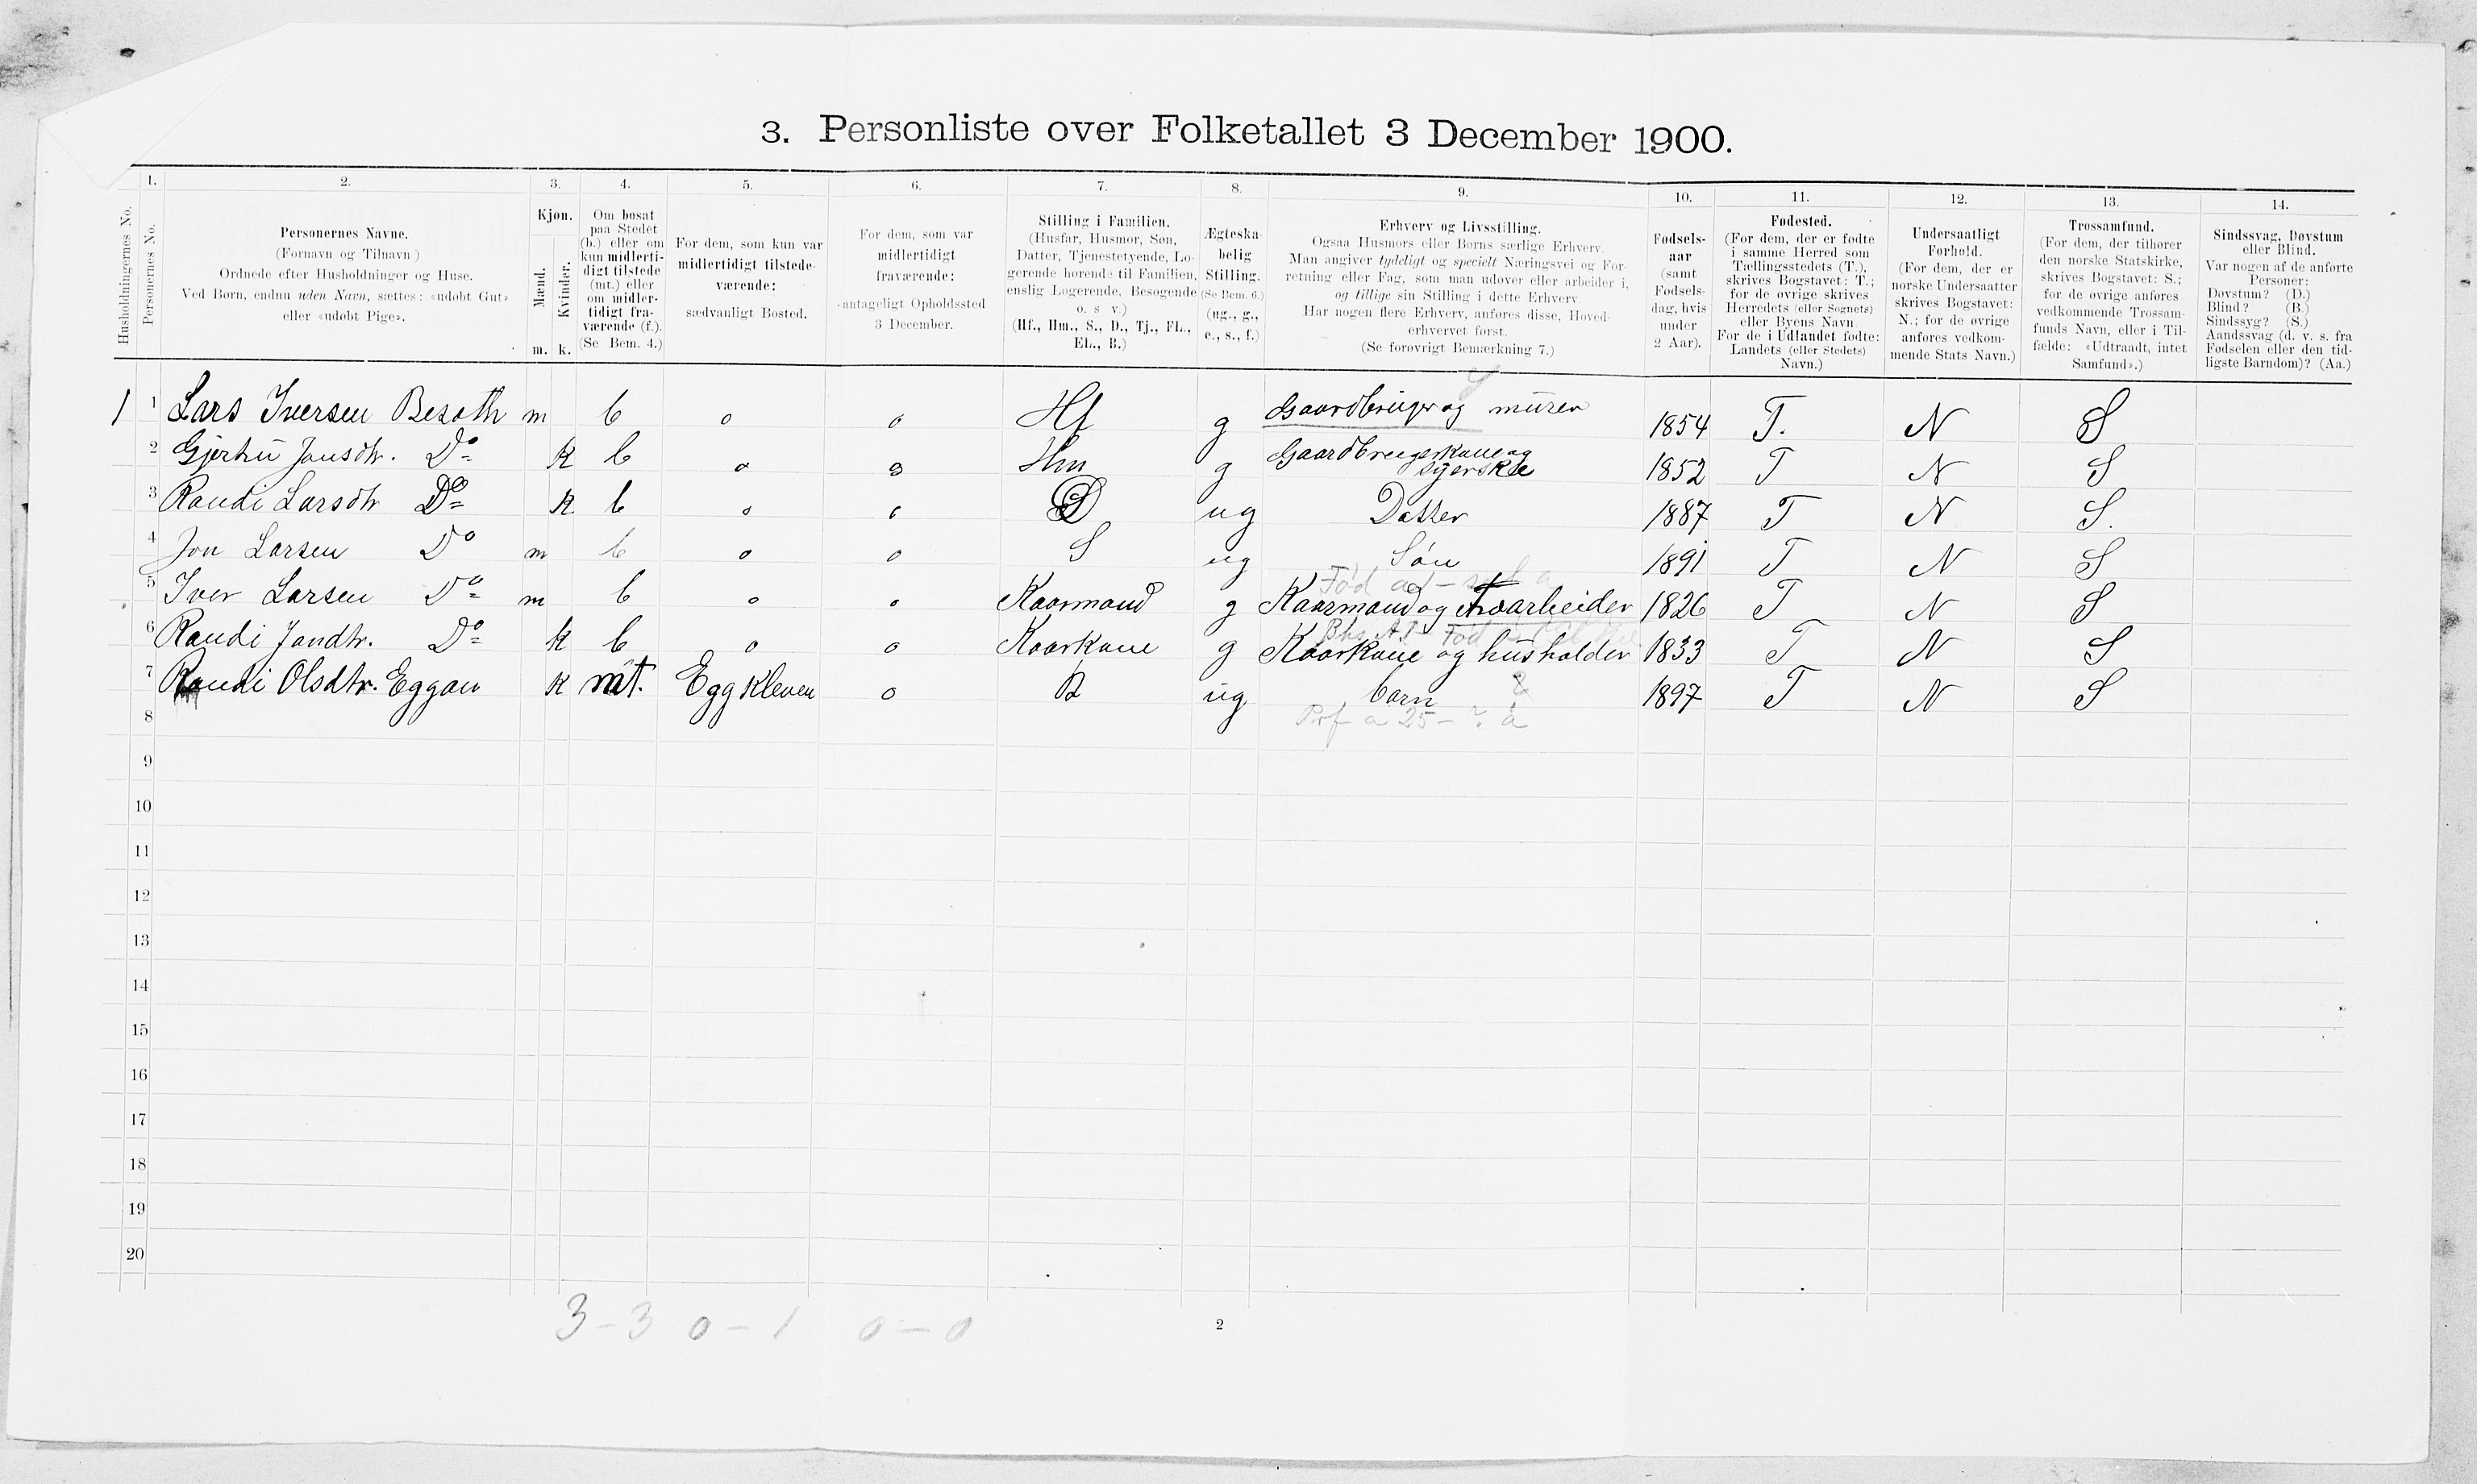 3. Personliste over Folketallet 3 December 1900.
1. 2. 3. 4. 5. 6. 7. 8. 9. 10. 11. 12. 13. 14.
Husholdningernes No.
Personernes No.
Personernes Navne.
(Fornavn og Tilnavn)
Ordnede efter Husholdninger og Huse.
Ved Børn, endnu uden Navn, sættes: «udøbt Gut»
eller «udøbt Pige».
Kjøn.
Mænd.
Kvinder.
m. k.
Om bosat
paa Stedet
(b.) eller om
kun midlerti-
digt tilstede
(mt.) eller
om midler-
tidigt fra-
værende (f.).
(Se Bem. 4.)
For dem, som kun var
midlertidigt tilstede-
værende:
sædvanligt Bosted.
For dem, som var
midlertidigt
fraværende:
antageligt Opholdssted
3 December.
Stilling i Familien.
(Husfar, Husmor, Søn,
Datter, Tjenestetyende, Lo-
gerende hørende til Familien,
enslig Logerende, Besøgende
o. s. v.)
(Hf., Hm., S., D., Tj., FL.,
EL., B.)
Ægteska-
belig
Stilling.
(Se Bem. 6.)
(ug., g.,
e., s., f.)
Erhverv og Livsstilling.
Ogsaa Husmors eller Børns særlige Erhverv.
Man angiver tydeligt og specielt Næringsvei og For-
retning eller Fag, som man udøver eller arbeider i,
og tillige sin Stilling i dette Erhverv.
Har nogen flere Erhverv, anføres disse, Hoved-
erhvervet først.
(Se forøvrigt Bemærkning 7.)
Fødsels-
aar
(samt
Fødsels-
dag, hvis
under
2 Aar).
Fødested.
(For dem, der er fødte
i samme Herred som
Tællingsstedets (T.),
skrives Bogstavet: T.;
for de øvrige skrives
Herredets (eller Sognets)
eller Byens Navn.
For de i Udlandet fødte:
Landets (eller Stedets)
Navn.)
Undersaatligt
Forhold.
(For dem, der er
norske Undersaatter
skrives Bogstavet:
N.; for de øvrige
anføres vedkom-
mende Stats Navn.)
Trossamfund.
(For dem, der tilhører
den norske Statskirke,
skrives Bogstavet: S.;
for de øvrige anføres
vedkommende Trossam-
funds Navn, eller i Til-
fælde: «Udtraadt, intet
Samfund».)
Sindssvag, Døvstum
eller Blind.
Var nogen af de anførte
Personer:
Døvstum? (D.)
Blind? (B.)
Sindssyg? (S.)
Aandssvag (d. v. s. fra
Fødselen eller den tid-
ligste Barndom)? (Aa.)
1 1 Lars Iversen Besøth m b o o Hf g Gaardbruger og murer 1854 T. N S
2 Gjertru Jonsdtr. Do k b o o Hm g Gaardbrugerkone og syerske 1852 T N S
3 Randi Larsdtr Do k b o o D ug Datter 1887 T N S.
4 Jon Larsen Do m b o o S ug Søn 1891 T N S
5 Iver Larsen Do m b o o Kaarmand g Kaarmand og Træarbeider 1826 T N S
6 Randi Jondtr. Do k b o o Kaarkone g Kaarkone og husholder 1833 T N S
7 Randi Olsdtr. Eggan k mt. Eggkleven o B ug barn 1897 T N S
8
9
10
11
12
13
14
15
16
17
18
19
20
3 - 3 0 - 1 0 - 0
2